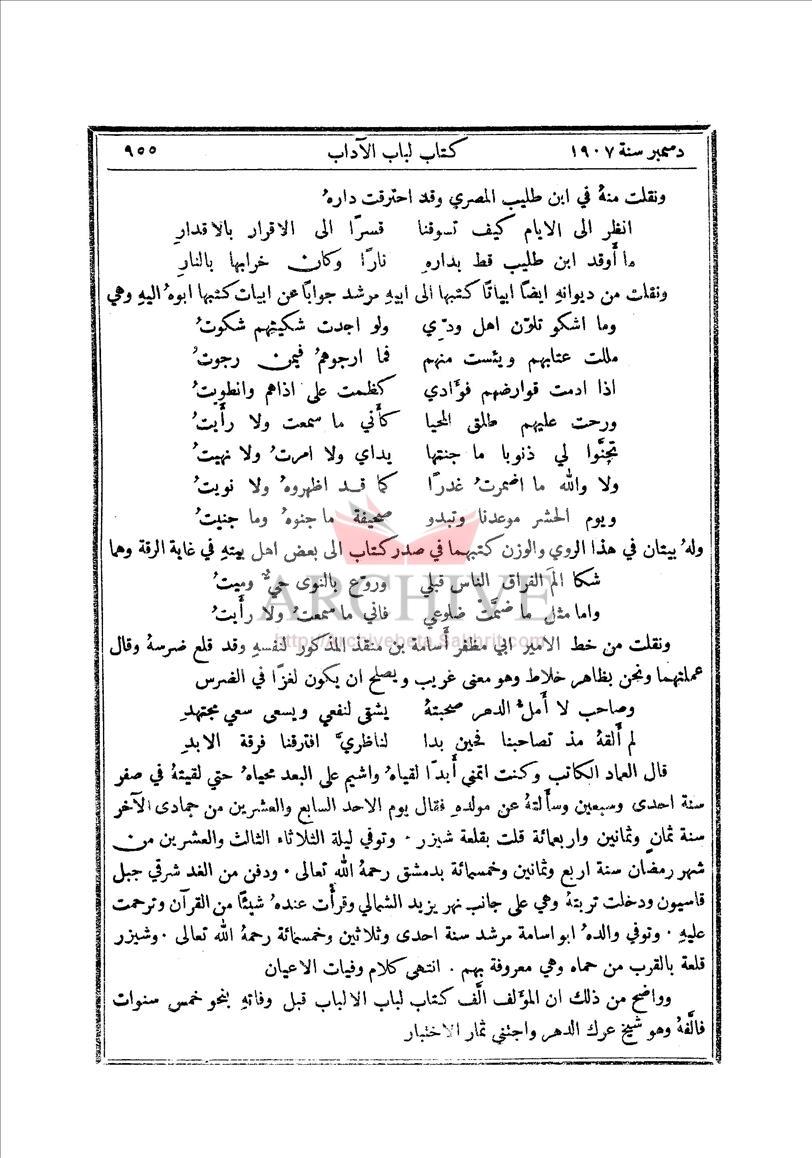 دسمبر سنة ١٩٠٧ كتاب لباب الآداب ٩٥٥
ونقلت منهُ في ابن طليب المصري وقد احترقت دارهُ
انظر الى الايام كيف تسوقنا قسرًا الى الاقرار بالاقدارِ
ما أوقد ابن طليب قط بدارهِ نارًا وكان خرابها بالنارِ
ونقلت من ديوانهِ ايضًا ابياتًا كتبها الى ابيهِ مرشد جوابًا عن ابيات كتبها ابوهُ اليهِ وهي
وما اشكو تلوّن اهل ودّي ولو اجدت شكيتهم شكوتُ
مللت عتابهم ويئست منهم فما ارجوهمُ فيمن رجوتُ
اذا ادمت قوارضهم فؤادي كظمت على اذاهم وانطويتُ
ورحت عليهم طلق المحيا كأني ما سمعت ولا رأيتُ
تجنَّوا لي ذنوبا ما جنتها يداي ولا امرتُ ولا نهيتُ
ولا والله ما اضمرتُ غدرًا كما قد اظهروهُ ولا نويتُ
ويوم الحشر موعدنا وتبدو صحيفة ما جنوهُ وما جنيتُ
ولهُ بيتان في هذا الروي والوزن كتبهما في صدر كتاب الى بعض اهل بيتهِ في غاية الرقة وهما
شكا المَ الفراق الناس قبلي وروّع بالنوى حيٌّ وميتُ
واما مثل ما ضمَّت ضلوعي فاني ما سمعتُ ولا رأيتُ
ARCHIVE
http://archivebeta.Sakhrit.com
ونقلت من خط الامير ابي مظفر أسامة بن منقذ المذكور لنفسهِ وقد قلع ضرسهُ وقال
عملتهما ونحن بظاهر خلاط وهو معنى غريب ويصلح ان يكون لغزًا في الضرس
وصاحب لا أملُّ الدهر صحبتهُ يشقى لنفعي ويسعى سعي مجتهدِ
لم ألقهُ مذ تصاحبنا فحين بدا لناظريَّ افترقنا فرقة الابدِ
قال العماد الكاتب وكنت اتمنى أبدًا لقياهُ واشيم على البعد محياهُ حتى لقيتهُ في صفر
سنة احدى وسبعين وسألتهُ عن مولدهِ فقال يوم الاحد السابع والعشرين من جمادى الآخر
سنة ثمانٍ وثمانين واربعمائة قلت بقلعة شيزر . وتوفي ليلة الثلاثاء الثالث والعشرين من
شهر رمضان سنة اربع وثمانين وخمسمائة بدمشق رحمهُ الله تعالى . ودفن من الغد شرقي جبل
قاسيون ودخلت تربتهُ وهي على جانب نهر يزيد الشمالي وقرأت عندهُ شيئًا من القرآن وترحمت
عليهِ . وتوفي والدهُ ابو اسامة مرشد سنة احدى وثلاثين وخمسمائة رحمهُ الله تعالى . وشيزر
قلعة بالقرب من حماه وهي معروفة بهم . انتهى كلام وفيات الاعيان
وواضح من ذلك ان المؤلف الَّف كتاب لباب الالباب قبل وفاتهِ بنحو خمس سنوات
فالَّفهُ وهو شيخ عرك الدهر واجتنى ثمار الاختبار